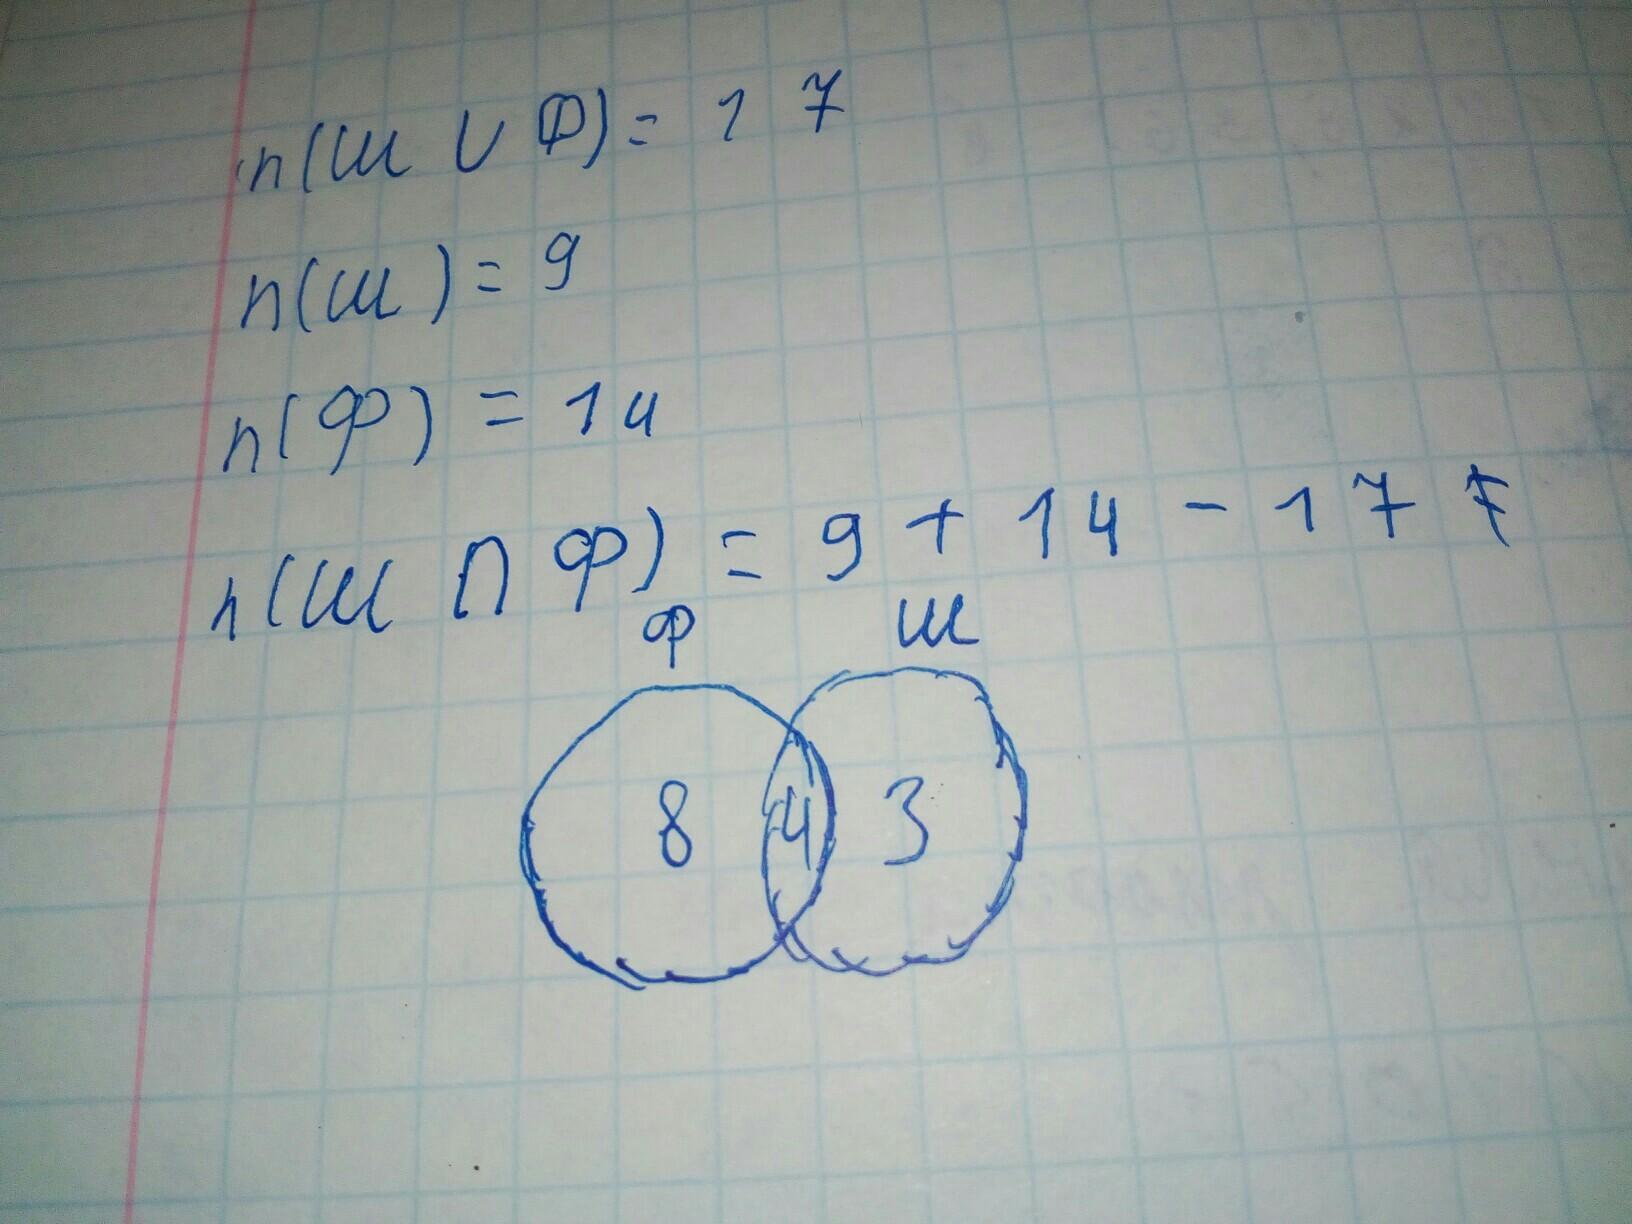 n(Ш ∪ Ф) = 17
n(Ш) = 9
n(Ф) = 14
n(Ш ∩ Ф) = 9 + 14 - 17
Ф Ш
8 4 3